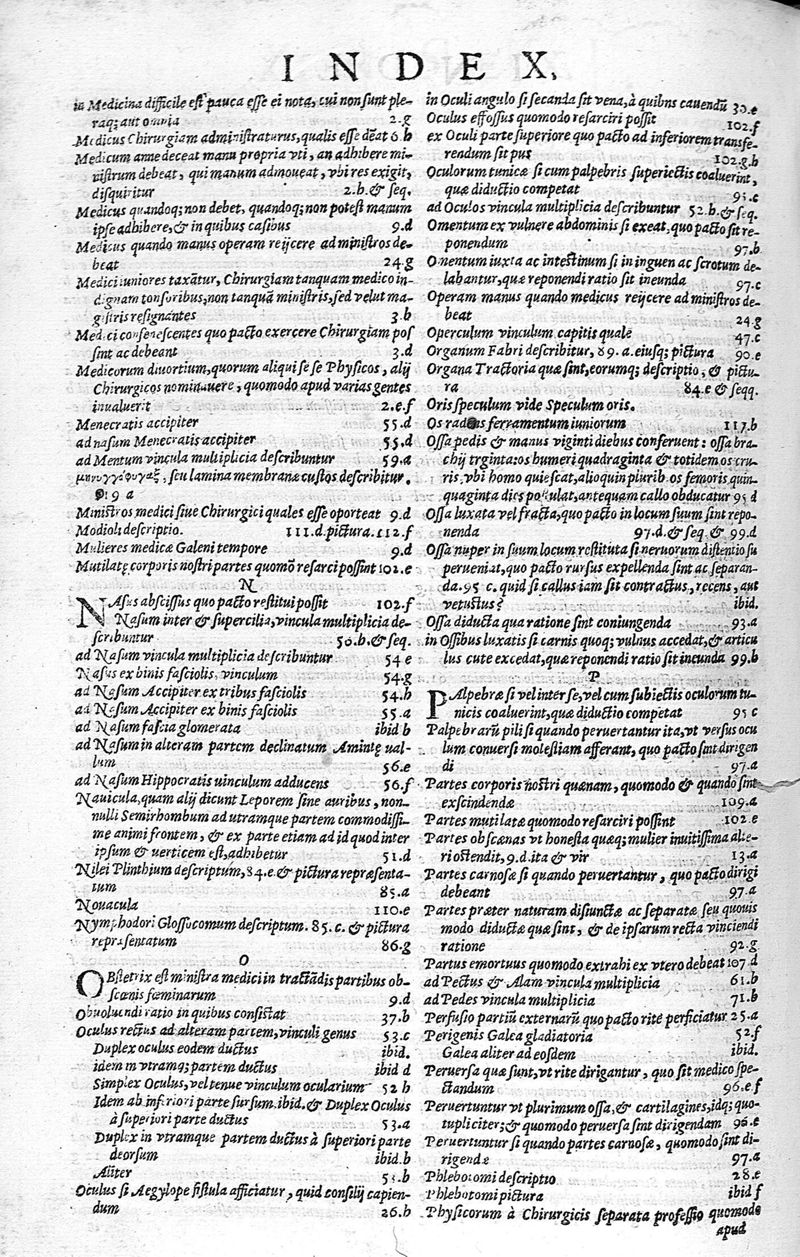 INDEX.
in Medicina difficile est pauca esse ei nota, cui non sunt ple-
raq; aut omnia 2.g
Medicus Chirurgiam administraturus, qualis esse dēat 6.b
Medicum anne deceat manu propria vti, an adhibere mi-
nistrum debeat, qui manum admoueat, vbi res exigit,
disquiritur 2.b.& seq.
Medicus quandoq; non debet, quandoq; non potest manum
ipse adhibere, & in quibus casibus 9.d
Medicus quando manus operam reijcere ad ministros de-
beat 24.g
Medici iuniores taxātur, Chirurgiam tanquam medico in-
dignam tonsoribus, non tanquā ministris, sed velut ma-
gistris resignantes 3.b
Medici consenescentes quo pacto exercere Chirurgiam pos
sint ac debeant 3.d
Medicorum diuortium, quorum aliqui se se Physicos, alij
Chirurgicos nominauere, quomodo apud varias gentes
inualuerit 2.e.f
Menecratis accipiter 55.d
ad nasum Menecratis accipiter 55.d
ad Mentum vincula multiplicia describuntur 59.a
μηνιγγοφύλαξ, seu lamina membranæ custos describitur.
9 a
Ministros medici siue Chirurgici quales esse oporteat 9.d
Modioli descriptio. 111.d.pictura.112.f
Mulieres medicæ Galeni tempore 9.d
Mutilatę corporis nostri partes quomō resarci possint 102.e
N
NAsus abscissus quo pacto restitui possit 102.f
Nasum inter & supercilia, vincula multiplicia de-
scribuntur 56.b.& seq.
ad Nasum vincula multiplicia describuntur 54 e
Nasus ex binis fasciolis, vinculum 54.g
ad Nasum Accipiter ex tribus fasciolis 54.h
ad Nasum Accipiter ex binis fasciolis 55.a
ad Nasum fascia glomerata ibid b
ad Nasum in alteram partem declinatum Amintę ual-
lum 56.e
ad Nasum Hippocratis uinculum adducens 56.f
Nauicula, quam alij dicunt Leporem sine auribus, non-
nulli Semirhombum ad utramque partem commodissi-
me animi frontem, & ex parte etiam ad id quod inter
ipsum & uerticem est, adhibetur 51.d
Nilei Plinthium descriptum, 84.e.& pictura repræsenta-
tum 85.a
Nouacula 110.e
Nymphodori Glossocomum descriptum. 85. c. & pictura
repræsentatum 86.g
O
OBstetrix est ministra medici in tractādis partibus ob-
scœnis fœminarum 9.d
Obuoluendi ratio in quibus consistat 37.b
Oculus rectus ad alteram partem, vinculi genus 53.c
Duplex oculus eodem ductus ibid.
idem in vtramq; partem ductus ibid d
Simplex Oculus, vel tenue vinculum ocularium 52 h
Idem ab inferiori parte sursum.ibid.& Duplex Oculus
à superiori parte ductus 53.a
Duplex in vtramque partem ductus à superiori parte
deorsum ibid.b
Aliter 53.b
Oculus si Aegylope fistula afficiatur, quid consilij capien-
dum 26.h
in Oculi angulo si secanda sit vena, à quibus cauendū 30.e
Oculus effossus quomodo resarciri possit 102.f
ex Oculi parte superiore quo pacto ad inferiorem transfe-
rendum sit pus 102.g.h
Oculorum tunicæ si cum palpebris superiectis coaluerint,
quæ diductio competat 95.c
ad Oculos vincula multiplicia describuntur 52.b.& seq.
Omentum ex vulnere abdominis si exeat, quo pacto sit re-
ponendum 97.b
Omentum iuxta ac intestinum si in inguen ac scrotum de-
labantur, quæ reponendi ratio sit ineunda 97.c
Operam manus quando medicus reijcere ad ministros de-
beat 24.g
Operculum vinculum capitis quale 47.c
Organum Fabri describitur, 89.a.eiusq; pictura 90.e
Organa Tractoria quæ sint, eorumq; descriptio, & pictu-
ra 84.e & seqq.
Oris speculum vide Speculum oris.
Os radens ferramentum iuniorum 117.b
Ossa pedis & manus viginti diebus conferuent: ossa bra-
chij trginta: os humeri quadraginta & totidem os cru-
ris, vbi homo quiescat, alioquin plurib. os femoris quin-
quaginta dies postulat, antequam callo obducatur 95 d
Ossa luxata vel fracta, quo pacto in locum suum sint repo-
nenda 97.d.& seq.& 99.d
Ossa nuper in suum locum restituta si neruorum distensio su
perueniat, quo pacto rursus expellenda sint ac separan-
da. 95 c. quid si callus iam sit contractus, recens, aut
vetustus? ibid.
Ossa diducta qua ratione sint coniungenda 93.a
in Ossibus luxatis si carnis quoq; vulnus accedat, & articu
lus cute excedat, quæ reponendi ratio sit ineunda 99.b
P
PAlpebræ si vel inter se, vel cum subiectis oculorum tu-
nicis coaluerint, quæ diductio competat 95 c
Palpebrarū pili si quando peruertantur ita, vt versus ocu
lum conuersi molestiam afferant, quo pacto sint dirigen
di 97.a
Partes corporis nostri quænam, quomodo & quando sint
exscindendæ 109.a
Partes mutilatæ quomodo resarciri possint 102.e
Partes obscænas vt honesta quæq; mulier inuitissima alte-
ri ostendit, 9.d.ita & vir 13.a
Partes carnosæ si quando peruertantur, quo pacto dirigi
debeant 97.a
Partes præter naturam disiunctæ ac separatæ seu quouis
modo diductæ quæ sint, & de ipsarum recta vinciendi
ratione 92.g
Partus emortuus quomodo extrahi ex vtero debeat 107.d
ad Pectus & Alam vincula multiplicia 61.b
ad Pedes vincula multiplicia 71.b
Perfusio partiū externarū quo pacto ritè perficiatur 25.a
Perigenis Galea gladiatoria 52.f
Galea aliter ad eosdem ibid.
Peruersa quæ sunt, vt rite dirigantur, quo sit medico spe-
ctandum 96.e.f
Peruertuntur vt plurimum ossa, & cartilagines, idq; quo-
tupliciter; & quomodo peruersa sint dirigendam 96.e
Peruertuntur si quando partes carnosæ, quomodo sint di-
rigendæ 97.a
Phlebotomi descriptio 28.e
Phlebotomi pictura ibid f
Physicorum à Chirurgicis separata professio quomodo
apud